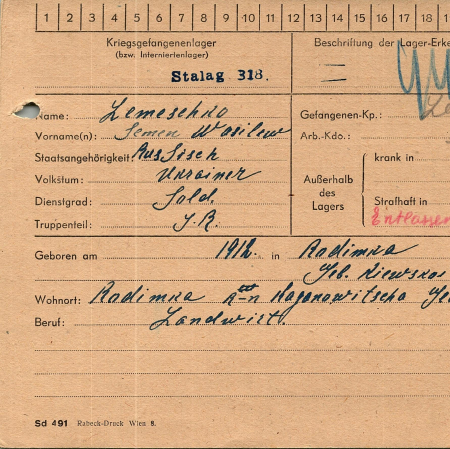 1 2 3 4 5 6 7 8 9 10 11 12 13 14 15 16 17 18
Kriegsgefangenenlager
(bzw. Interniertenlager)
Stalag 318.
Beschriftung der Lager-Erke
Name: Lemeschko
Vorname(n): Semen Wasilew
Staatsangehörigkeit: Russisch
Volkstum: Ukrainer
Dienstgrad: Sold.
Truppenteil: J.R.
Gefangenen-Kp.:
Arb.-Kdo.:
Außerhalb
des
Lagers
krank in
Strafhaft in
Entlassen
Geboren am 1912. in Radimka
Geb. Kiewskaj
Wohnort: Radimka R-n Kaganowitscha Ge
Beruf: Landwirt.
Sd 491 Rabeck-Druck Wien 8.